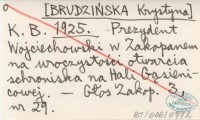 [BRUDZIŃSKA Krystyna]
K. B. 1925. - Prezydent
Wojciechowski w Zakopanem
na uroczystości otwarcia
schroniska na Hali Gąsieni-
cowej. - Głos Zakop. 3,
nr 29.